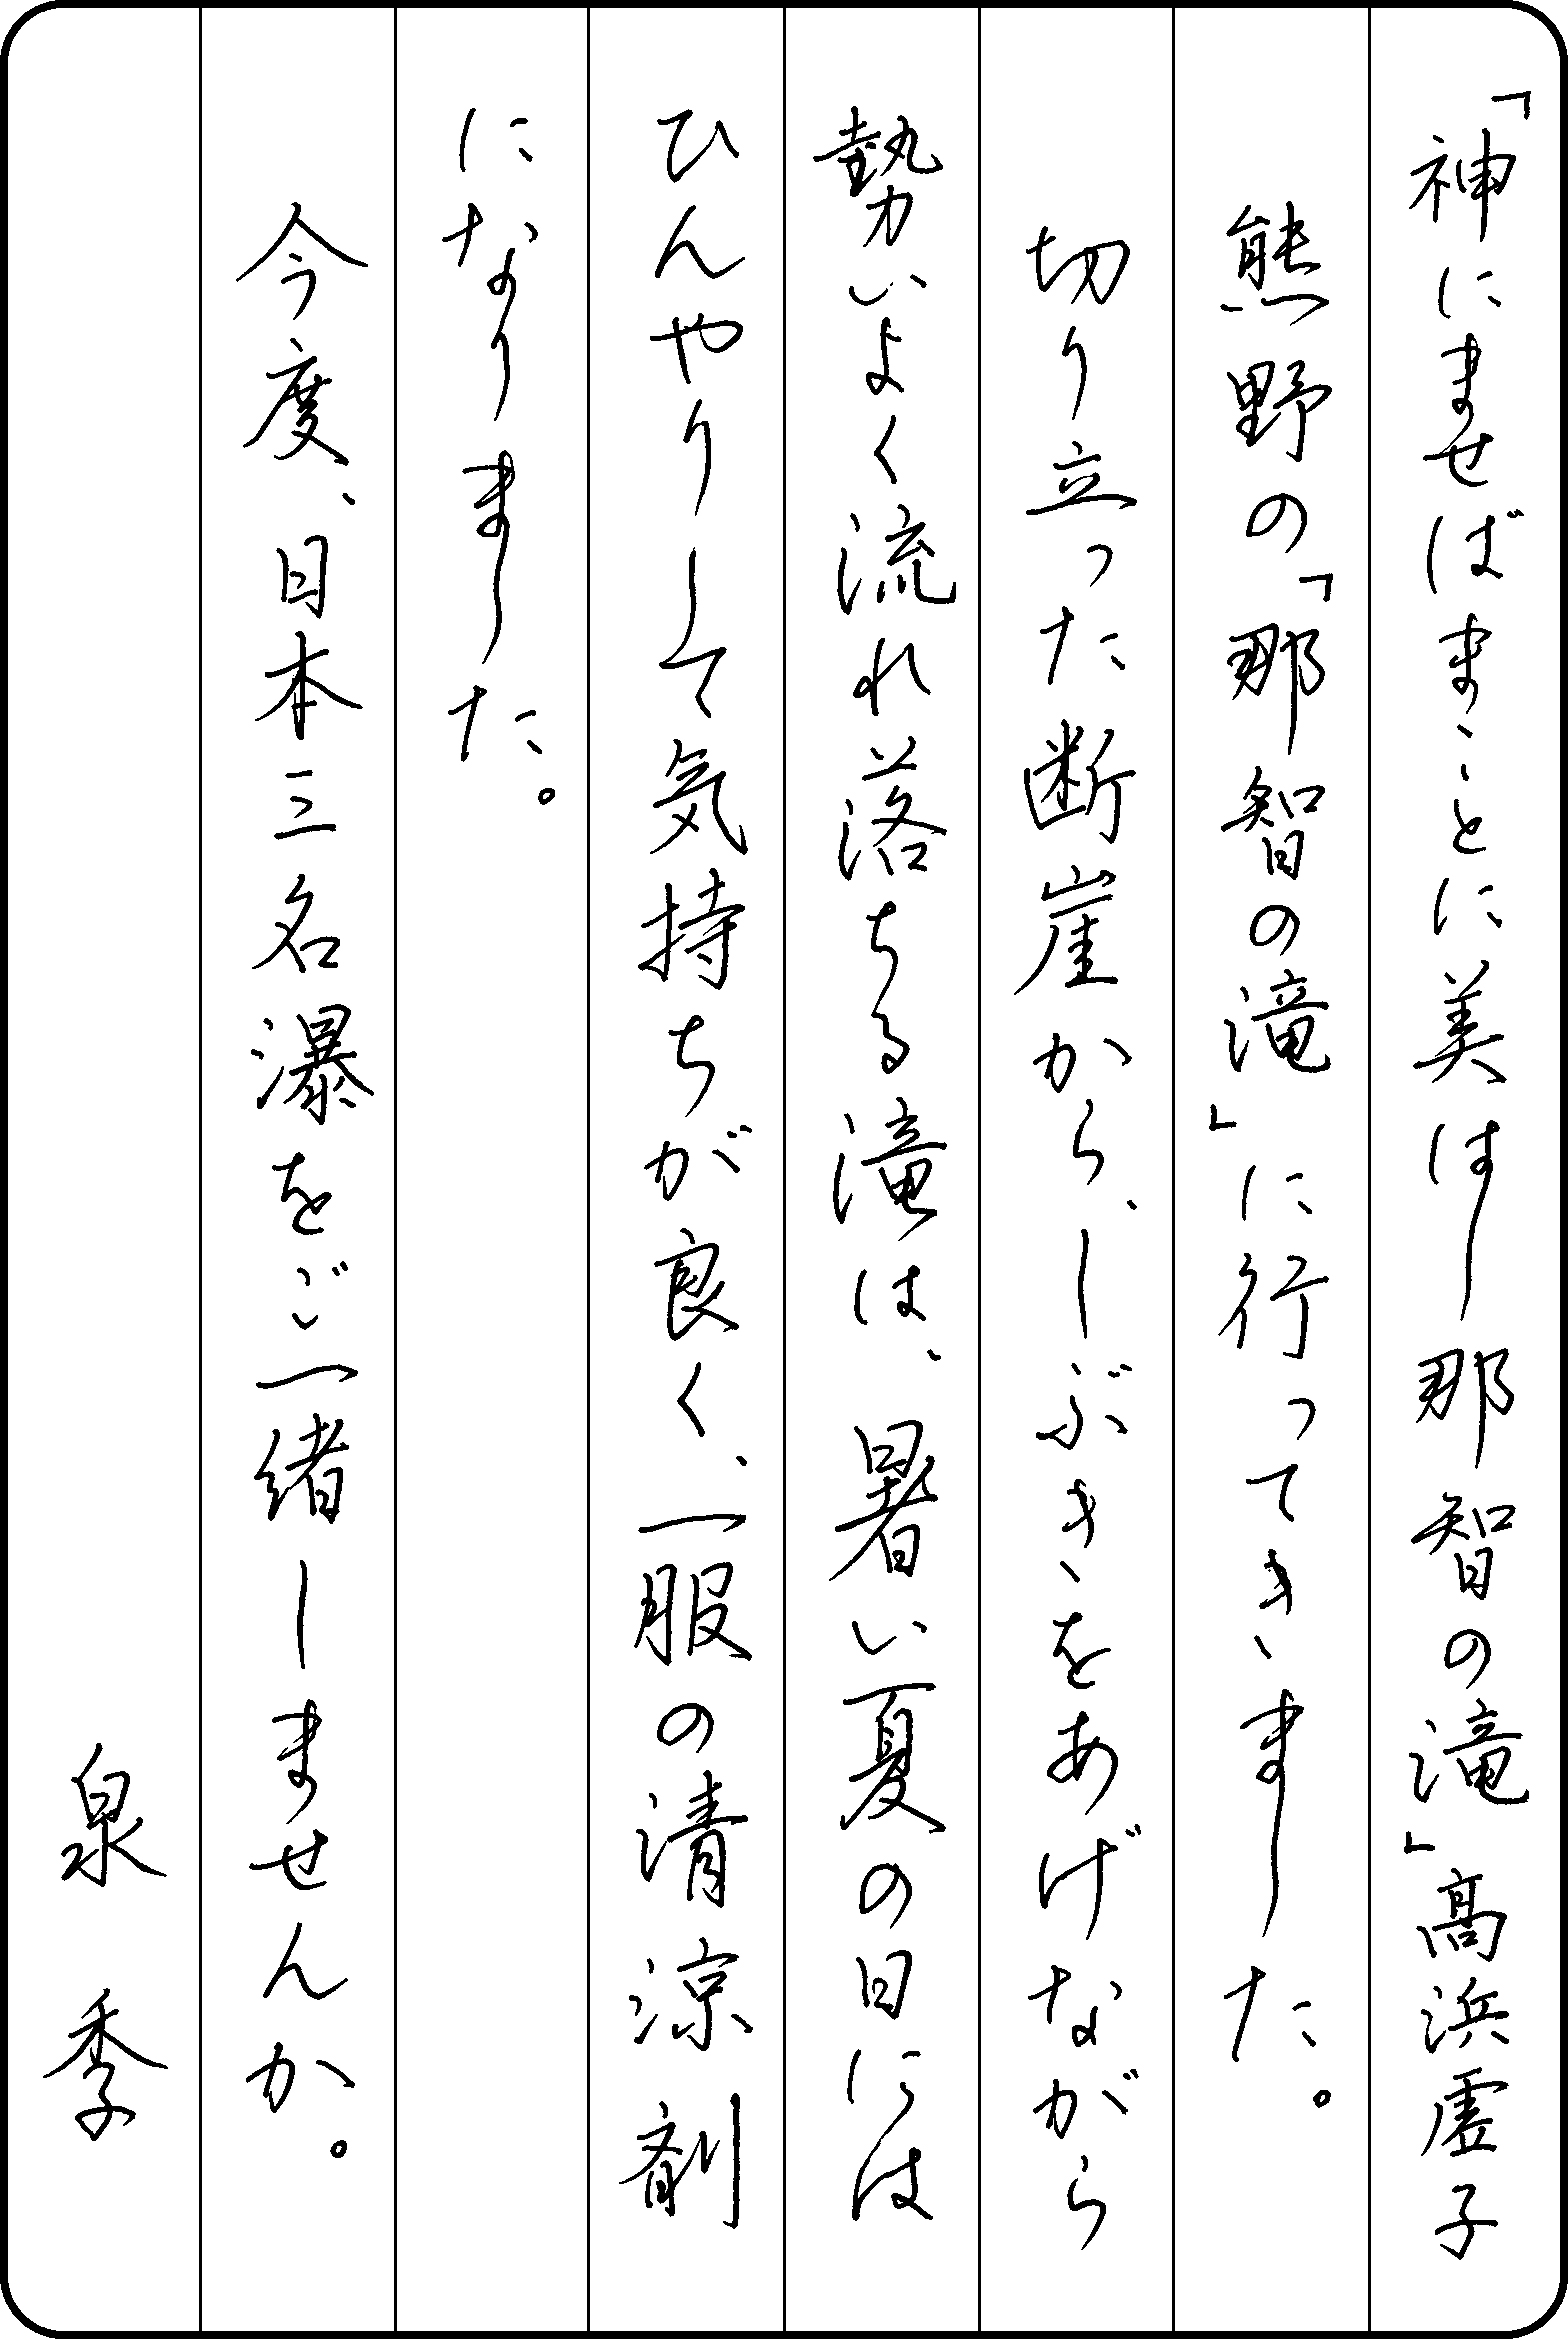 「神にませばまことに美はし那智の滝」高浜虚子
熊野の「那智の滝」に行ってきました。
切り立った断崖から、しぶきをあげながら
勢いよく流れ落ちる滝は、暑い夏の日には
ひんやりして気持ちが良く、一服の清涼剤
になりました。
今度、日本三名瀑をご一緒しませんか。
泉 季